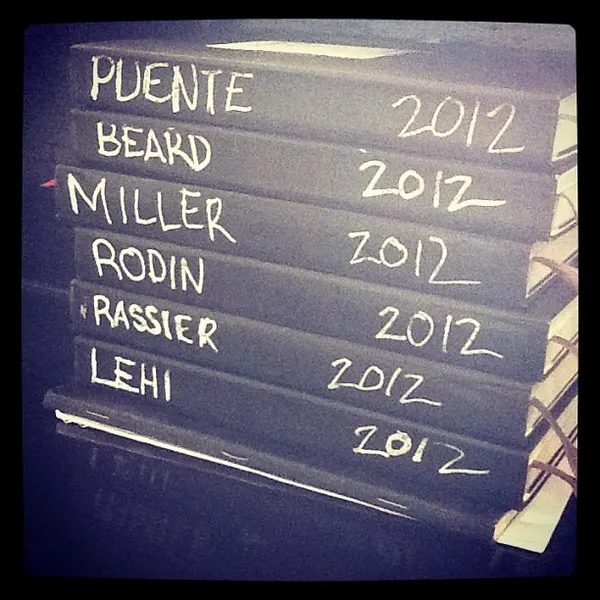 PUENTE 2012
BEARD 2012
MILLER 2012
RODIN 2012
RASSIER 2012
LEHI 2012